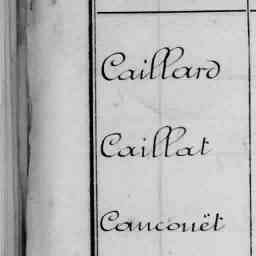 Caillard
Caillat
Cancouët